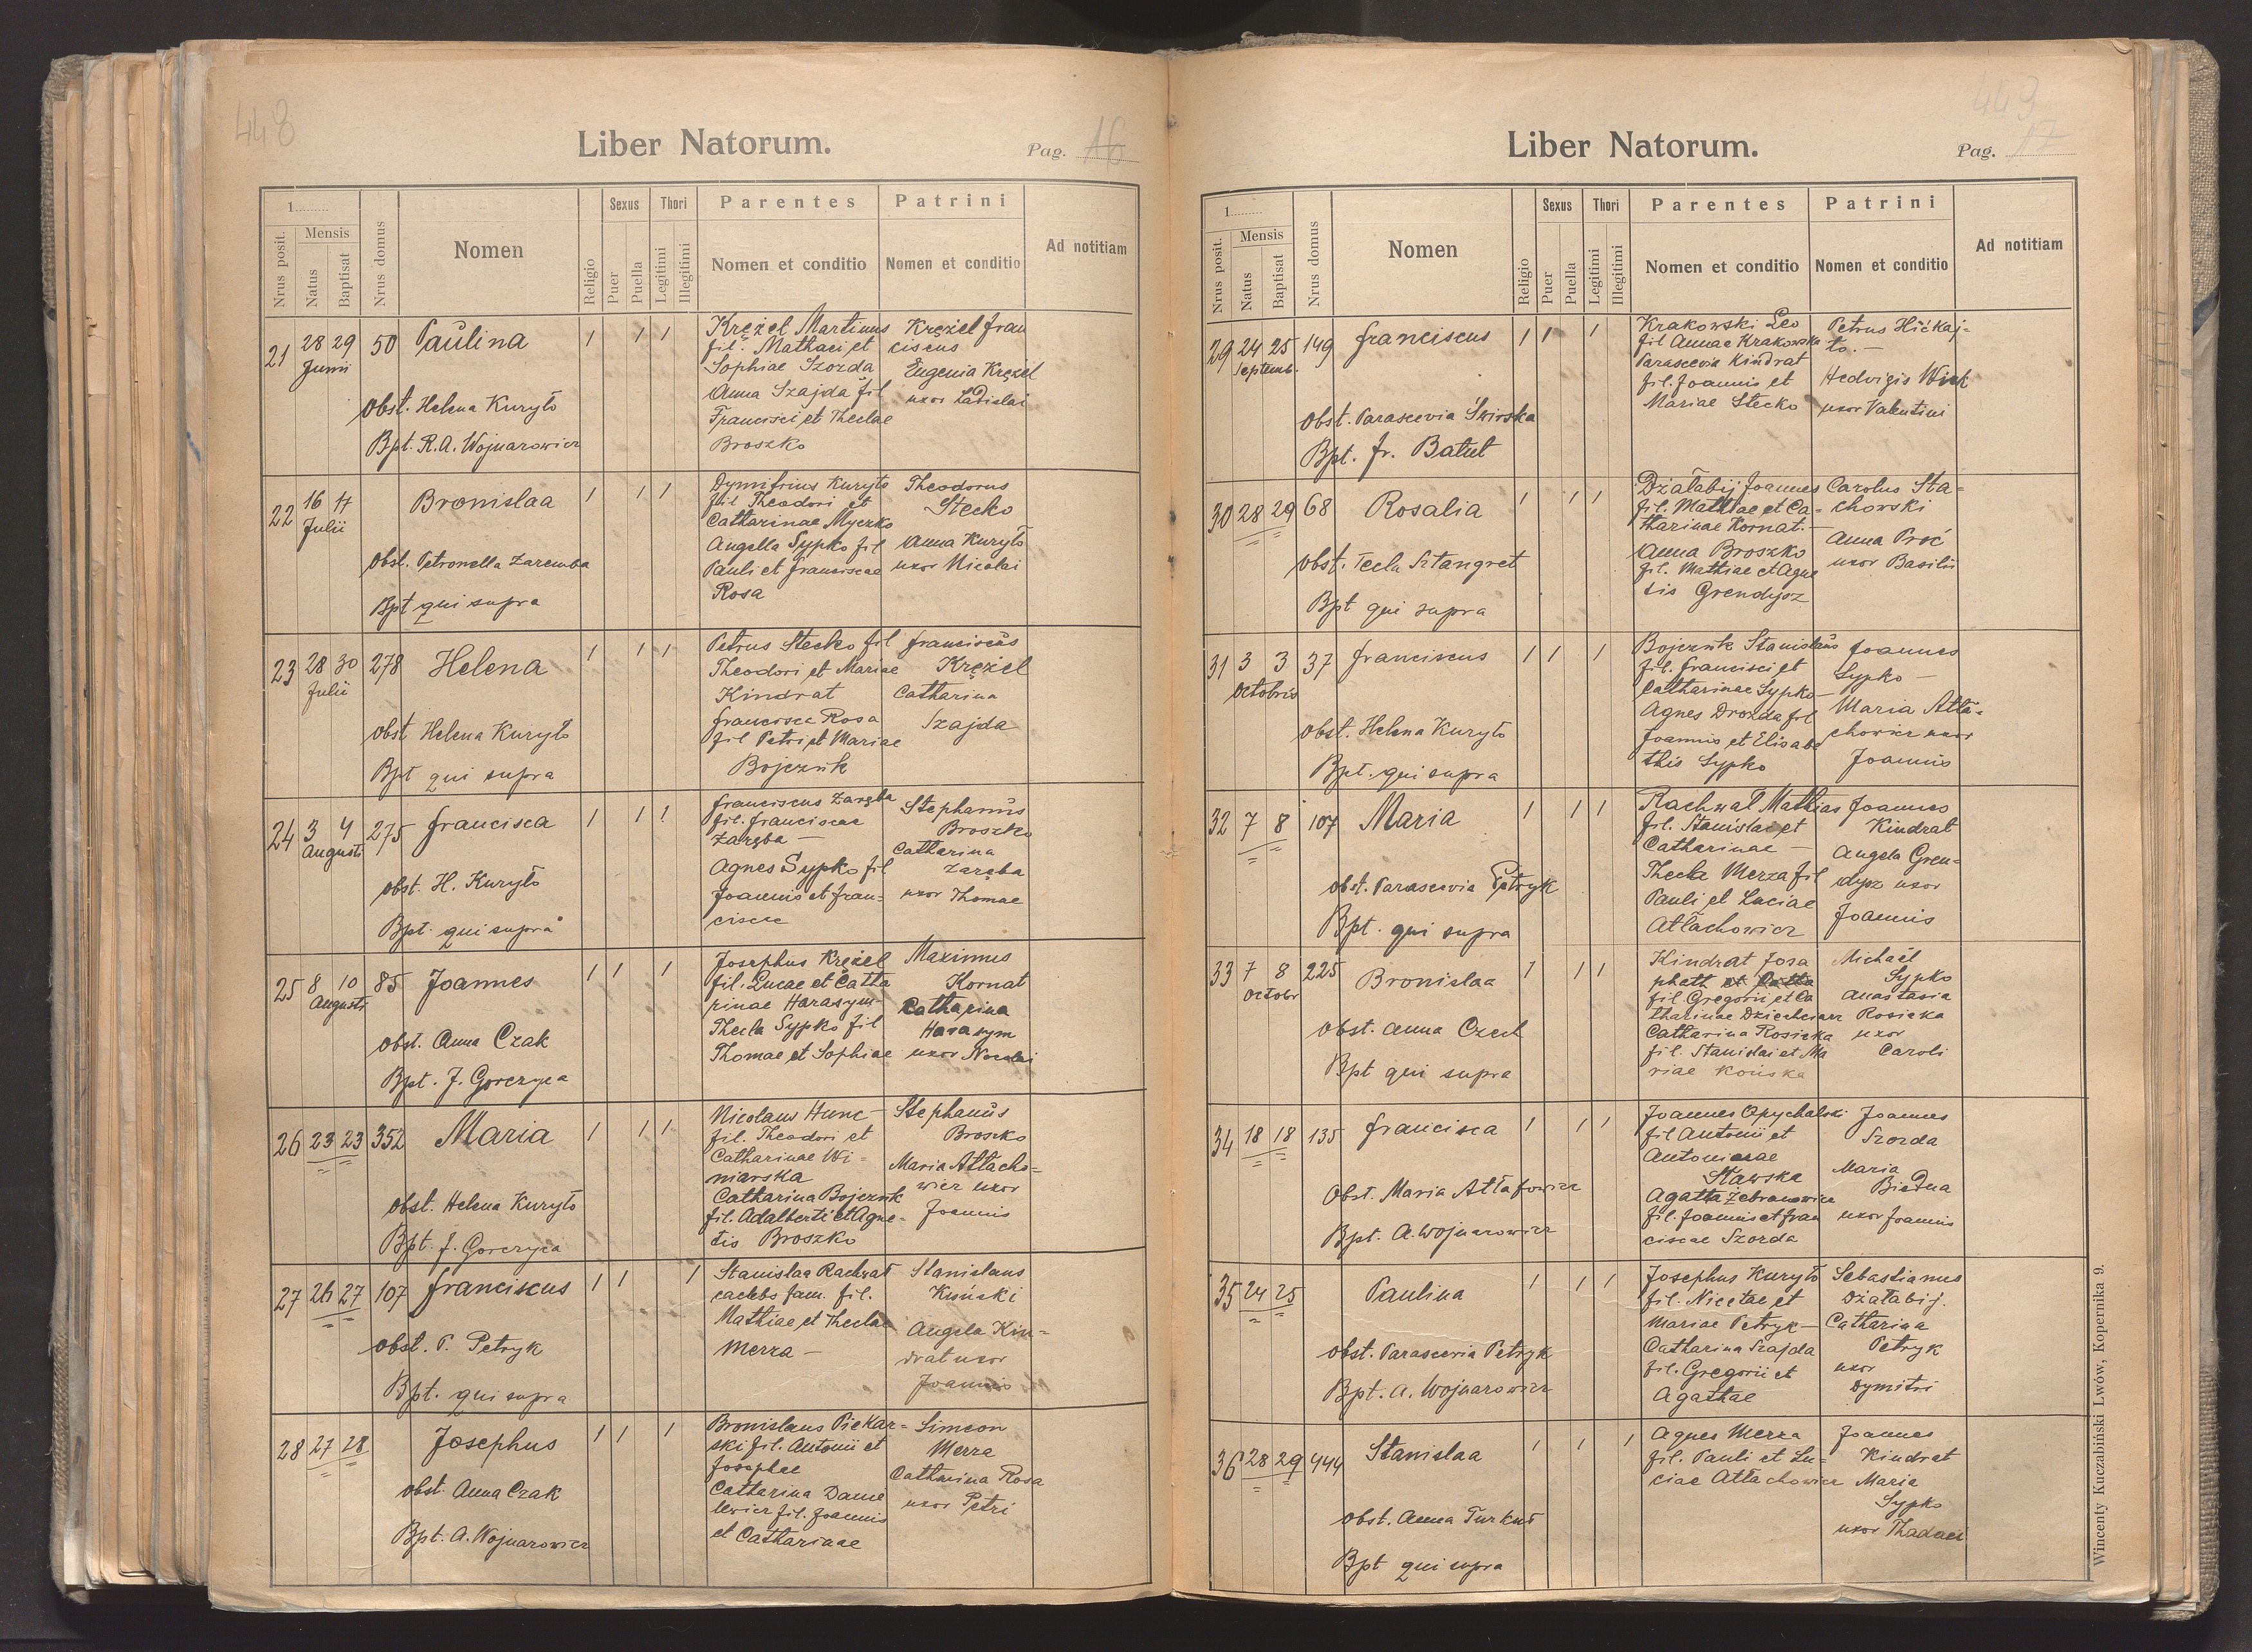 448
Liber Natorum.
Pag. 16
1
Nrus posit.
Mensis
Natus
Baptisat
Nrus domus
Nomen
Religio
Sexus
Puer
Puella
Thori
Legitimi
Illegitimi
Parentes
Nomen et conditio
Patrini
Nomen et conditio
Ad notitiam
21 28 29 50 Paulina 1 1 1
Junii
Obst. Helena Kuryło
Bpt. R. A. Wojnarowicz
Krężel Martinus
fil. Mathaei et
Sophiae Szozda
Anna Szajda fil
Francisci et Theclae
Broszko
Krężel Fran
ciscus
Eugenia Krężel
uxor Ladislai
22 16 17 Bronislaa 1 1 1
Julii
Obst. Petronella Zaremba
Bpt qui supra
Dymitrius Kuryło
fil Theodori et
Catharinae Myczko
Angella Sypko fil
Pauli et Franciscae
Rosa
Theodorus
Stecko
Anna Kuryło
uxor Nicolai
23 28 30 278 Helena 1 1 1
Julii
Obst Helena Kuryło
Bpt qui supra
Petrus Stecko fil
Theodori et Mariae
Kindrat
Francisca Rosa
fil Petri et Mariae
Bojczuk
Franciscus
Krężel
Catharina
Szajda
24 3 4 275 Francisca 1 1 1
Augusti
Obst. H. Kuryło
Bpt. qui supra
Franciscus Zaręba
fil. Franciscae
Zaręba —
Agnes Sypko fil
Joannis et Fran=
ciscae
Stephanus
Broszko
Catharina
Zaręba
uxor Thomae
25 8 10 85 Joannes 1 1 1
Augusti
Obst. Anna Czak
Bpt. J. Gorczyca
Josephus Krężel
fil. Lucae et Catha
rinae Harasym-
Thecla Sypko fil
Thomae et Sophiae
Maximus
Kornat
Catharina
Harasym
uxor Nicolai
26 23 23 352 Maria 1 1 1
Obst. Helena Kuryło
Bpt. J. Gorczyca
Nicolaus Hunc-
fil. Theodori et
Catharinae Wi=
niarska
Catharina Bojczuk
fil. Adalberti et Agne-
tis Broszko
Stephanus
Broszko
Maria Attacho=
wicz uxor
Joannis
27 26 27 107 Franciscus 1 1 1
Obst. P. Petryk
Bpt. qui supra
Stanislaa Rachwał
caelebs fam. fil.
Mathiae et Theclae
Merza —
Stanislaus
Angela Kin=
drat uxor
Joannis
28 27 28 Josephus 1 1 1
Obst. Anna Czak
Bpt. A. Wojnarowicz
Bronislaus Piekar=
ski fil. Antonii et
Josephae
Catharina Danie
lewicz fil. Joannis
et Catharinae
Simeon
Merza
Catharina Rosa
uxor Petri
449
Liber Natorum.
Pag. 17
1
Nrus posit.
Mensis
Natus
Baptisat
Nrus domus
Nomen
Religio
Sexus
Puer
Puella
Thori
Legitimi
Illegitimi
Parentes
Nomen et conditio
Patrini
Nomen et conditio
Ad notitiam
29 24 25 149 Franciscus 1 1 1
Septemb.
Obst. Parascevia Świrska
Bpt. Fr. Batut
Krakowski Leo
fil Annae Krakowska
Parascevia Kindrat
fil. Joannis et
Mariae Stecko
Petrus Hićkaj=
to. —
Hedvigis Wilk
uxor Valentini
30 28 29 68 Rosalia 1 1 1
Obst. Tecla Sztangret
Bpt qui supra
Działabij Joannes
fil. Mathiae et Ca-
tharinae Kornat. —
Anna Broszko
fil. Mathiae et Agne
tis Grendysz
Carolus Sta=
chowski
Anna Proć
uxor Basilii
31 3 3 37 Franciscus 1 1 1
Octobris
Obst. Helena Kuryło
Bpt. qui supra
Bojczuk Stanislaus
fil. Francisci et
Catharinae Sypko —
Agnes Drozda fil
Joannis et Elisabe
this Sypko
Joannes
Sypko —
Maria Atta=
chowicz uxor
Joannis
32 7 8 107 Maria 1 1 1
Obst. Parascevia Petryk
Bpt. qui supra
Rachwał Mathias
fil. Stanislai et
Catharinae —
Thecla Merza fil
Pauli et Luciae
Attachowicz
Joannes
Kindrat
Angela Gren=
dysz uxor
Joannis
33 7 8 225 Bronislaa 1 1 1
Octobr
Obst. Anna Czech
Bpt qui supra
Kindrat Josa
phath et Catha
fil Gregorii et Ca
tharinae Dziechciarz
Catharina Rosicka
fil. Stanislai et Ma
riae Końska
Michaël
Sypko
Anastasia
Rosicka
uxor
Caroli
34 18 18 135 Francisca 1 1 1
Obst. Maria Attafowicz
Bpt. A. Wojnarowicz
Joannes Opychalski
fil Antonii et
Antoninae
Stawska
Agatha Żebranowicz
fil. Joannis et Fran
ciscae Szozda
Joannes
Szozda
Maria
Biedna
uxor Joannis
35 24 25 Paulina 1 1 1
Obst. Parascevia Petryk
Bpt. A. Wojnarowicz
Josephus Kuryło
fil. Nicetae et
Mariae Petryk —
Catharina Szajda
fil. Gregorii et
Agathae
Sebastianus
Działabij.
Catharina
Petryk
uxor
Dymitri
36 28 29 444 Stanislaa 1 1 1
Obst. Anna Turkuł
Bpt qui supra
Agnes Merza
fil. Pauli et Lu=
ciae Attachowicz
Joannes
Kindrat
Maria
Sypko
uxor Thadaei
Wincenty Kuczabiński Lwów, Kopernika 9.